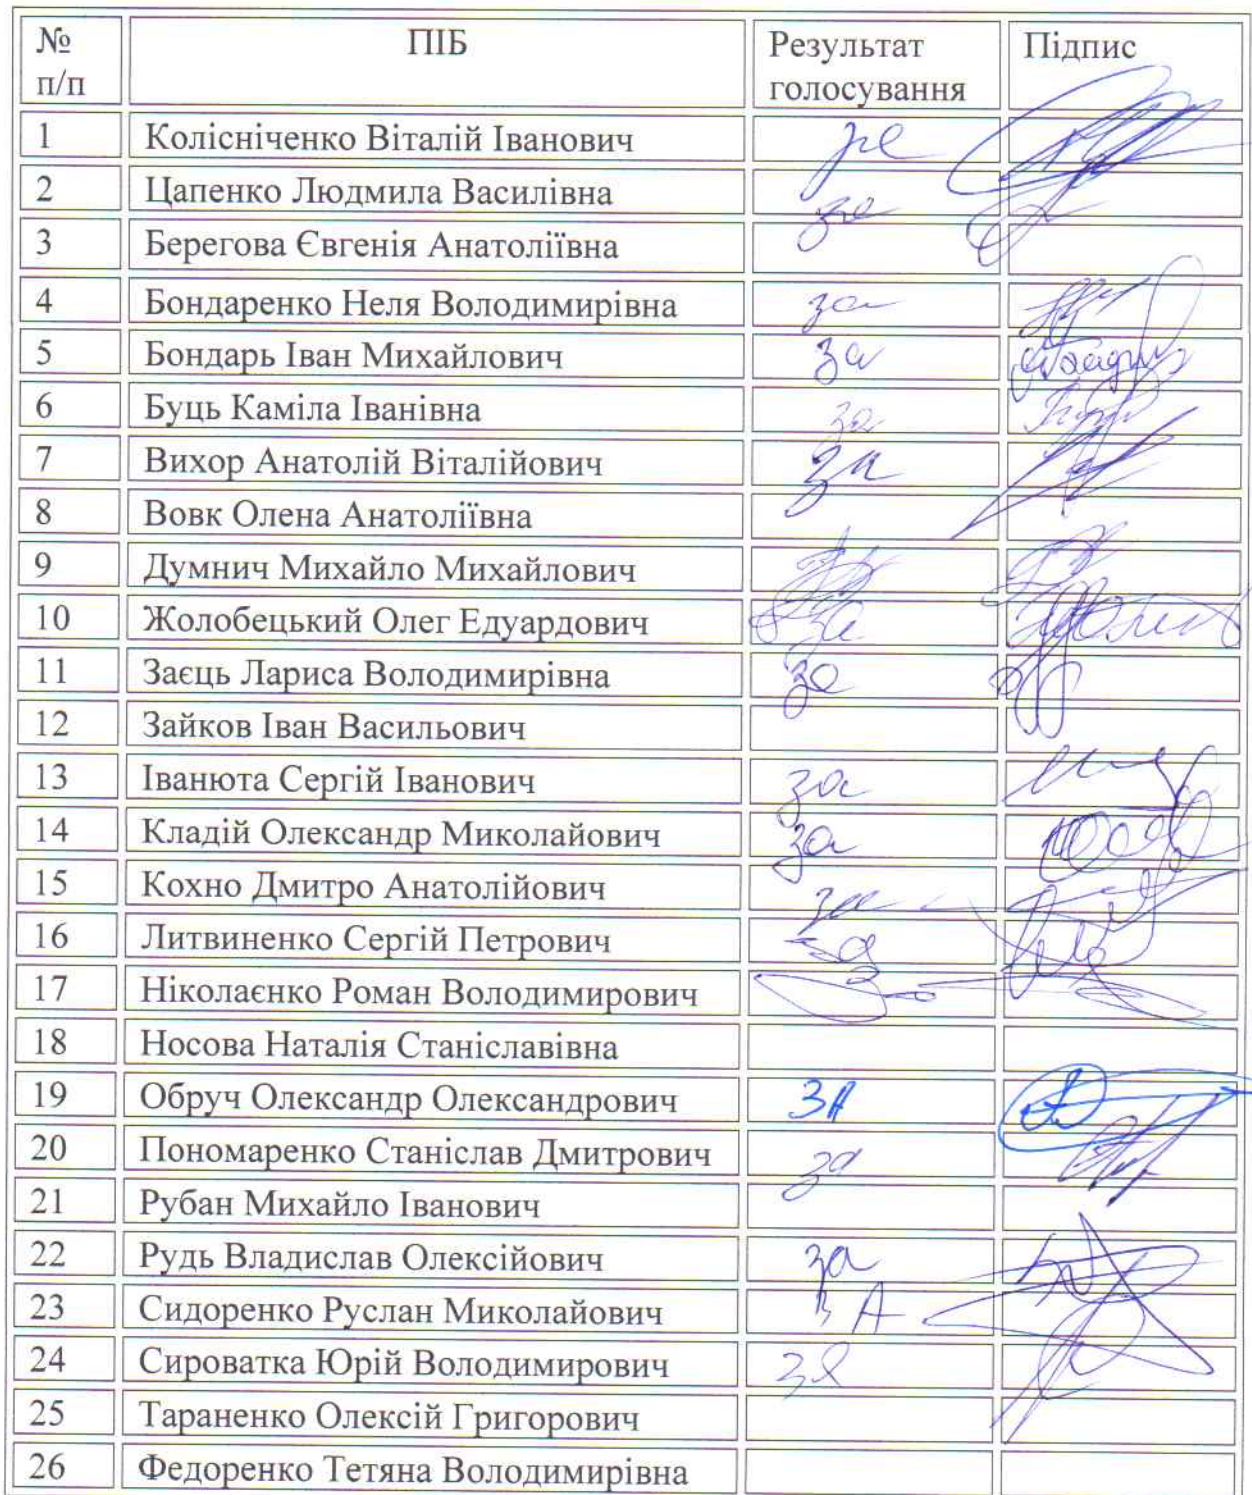 № п/п ПІБ Результат голосування Підпис
1 Колісніченко Віталій Іванович за
2 Цапенко Людмила Василівна за
3 Берегова Євгенія Анатоліївна
4 Бондаренко Неля Володимирівна за
5 Бондарь Іван Михайлович за
6 Буць Каміла Іванівна за
7 Вихор Анатолій Віталійович за
8 Вовк Олена Анатоліївна
9 Думнич Михайло Михайлович
10 Жолобецький Олег Едуардович за
11 Заєць Лариса Володимирівна за
12 Зайков Іван Васильович
13 Іванюта Сергій Іванович за
14 Кладій Олександр Миколайович за
15 Кохно Дмитро Анатолійович за
16 Литвиненко Сергій Петрович за
17 Ніколаєнко Роман Володимирович
18 Носова Наталія Станіславівна
19 Обруч Олександр Олександрович ЗА
20 Пономаренко Станіслав Дмитрович за
21 Рубан Михайло Іванович
22 Рудь Владислав Олексійович за
23 Сидоренко Руслан Миколайович ЗА
24 Сироватка Юрій Володимирович за
25 Тараненко Олексій Григорович
26 Федоренко Тетяна Володимирівна